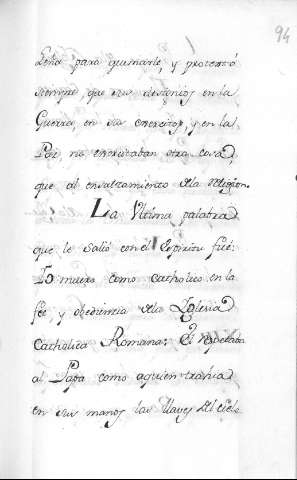 94
Leña para quemarle, y protestó
siempre que sus designios en la
Guerra, en sus exercitos, y en la
Paz, no enderezaban otra cosa,
que al ensalzamiento de la religion.
La Vltima palabra
que le salió con el Espiritu fué:
Yo muero como catholico en la
feé, y obediencia de la Yglesia
Catholica Romana: Él respetaba
al Papa como a quien trahia
en sus manos las llaves del cielo